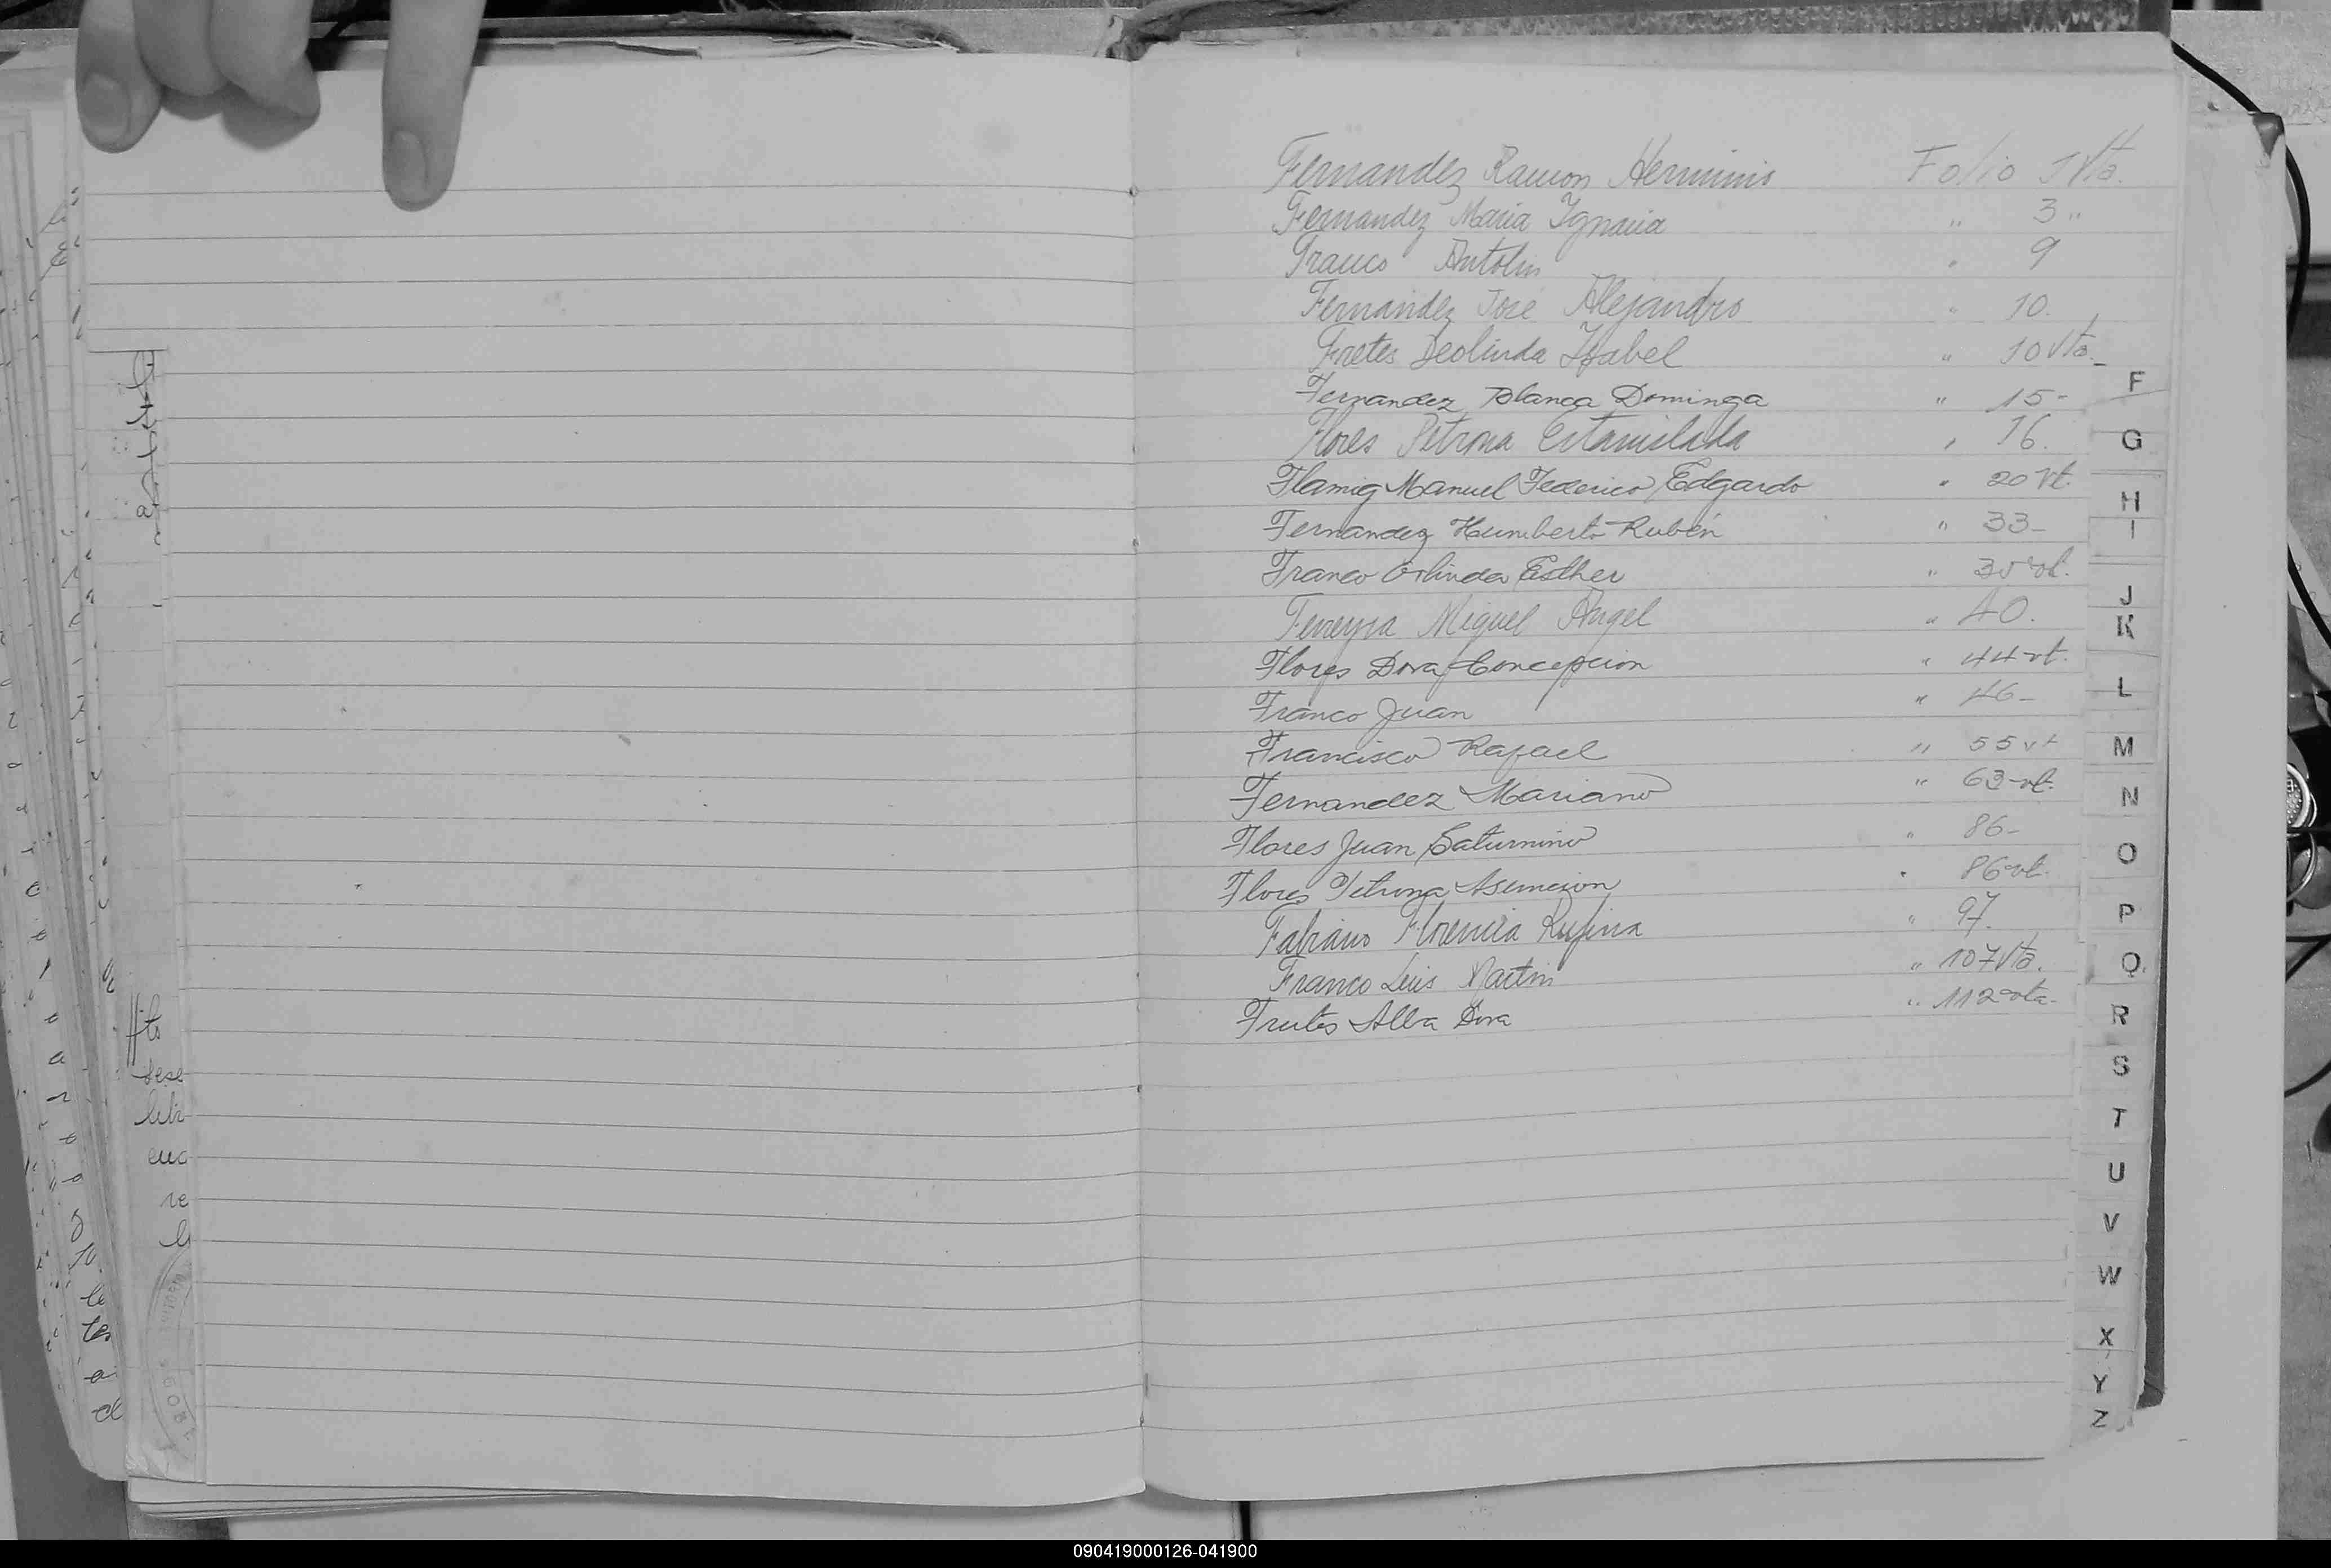 Fernandez Ramon Herminio Folio 1 Vta.
Fernandez Maria Ygnacia " 3 "
Franco Antolin " 9
Fernandez José Alejandro " 10.
Fretes Deolinda Isabel " 10 Vta.
Fernandez Blanca Dominga " 15-
Flores Petrona Estanislada " 16.
Flamig Manuel Federico Edgardo " 20 Vt.
Fernandez Humberto Rubén " 33-
Franco Orlinda Esther " vt.
Ferreyra Miguel Angel " 40.
Flores Dora Concepcion " 44 vt.
Franco Juan " 46-
Francisco Rafael " 55 vt
Fernandez Mariano " 63 vt.
Flores Juan Saturnino " 86-
Flores Petrona Asuncion " 86 vt.
Florencia Rufina " 97.
Franco Luis Martin " 107 Vta.
Alba Dora " 112 vta-
F
G
H
I
J
K
L
M
N
O
P
Q
R
S
T
U
V
W
X
Y
Z
090419000126-041900